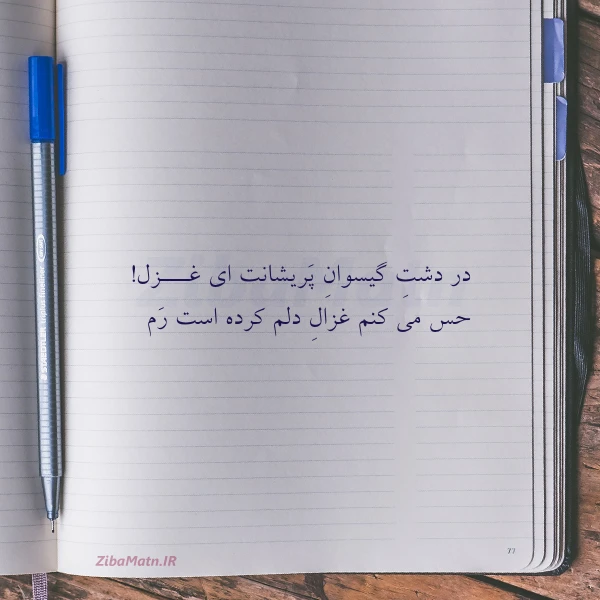 در دشتِ گیسوانِ پَریشانت ای غـــزل!
حس می کنم غزالِ دلم کرده است رَم
ZibaMatn.IR
77